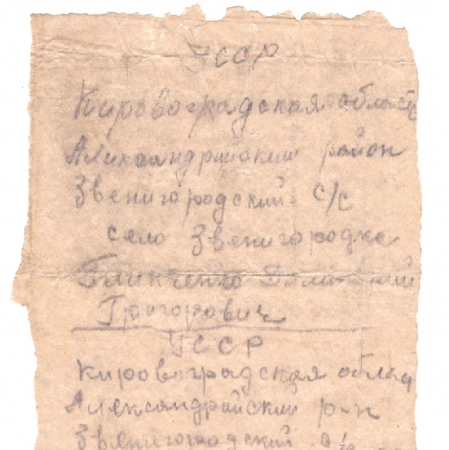 УССР
Кировоградская область
Александрийский район
Звенигородский с/с
село Звенигородка
Григорович
УССР
Кировоградская област
Александрийский р-н
Звенигородский с/с